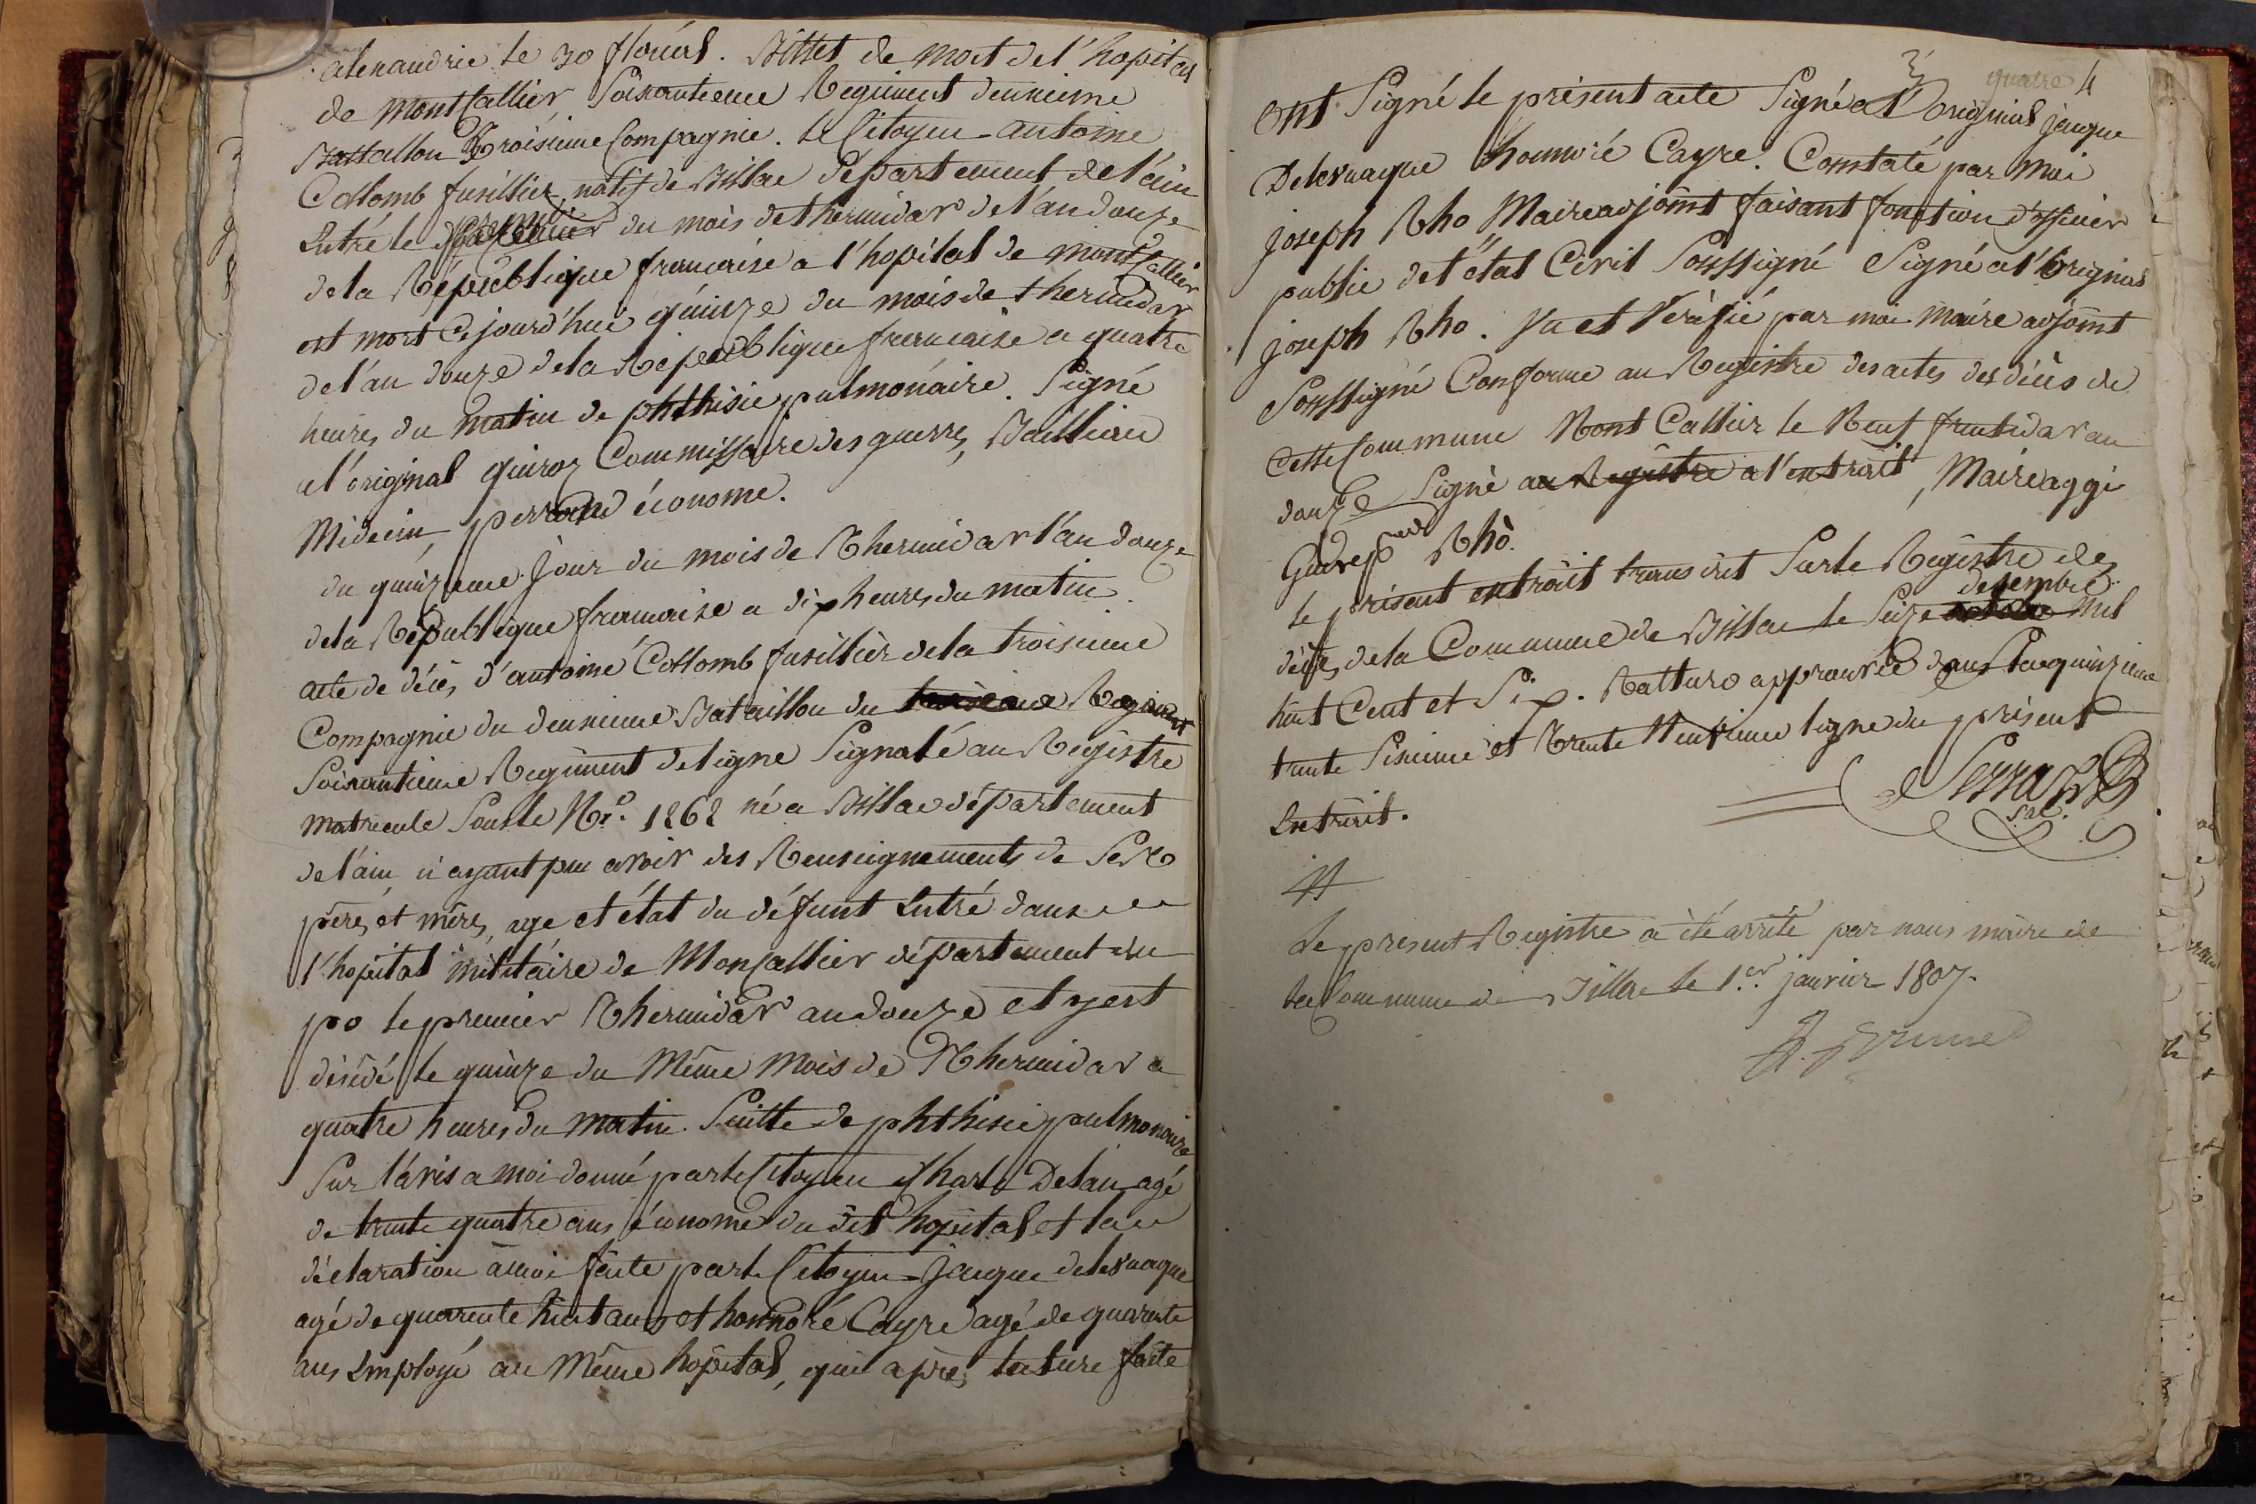 alexandrie le 30 floréal. Billet de mort de l'hopital
de mont Callier Soixantieme Regiment deuxieme
Battallon Troisieme Compagnie. Le Citoyen antoine
Collomb fusillier, natif de Billac département de l'ain
Entré le premier du mois de thermidor de l'an douze
de la République francaise a l'hopital de mont Callier
est mort Cejourd'hui quinze du mois de thermidor
de l'an douze de la République francaise a quatre
heures du matin de phthisie pulmonaire. Signé
a l'original quiroz Commissaire des guerres, Baillieu
Médecin, perrond économe.
du quinzieme jour du mois de Thermidor l'an douze
de la République francaise a dix heures du matin
acte de décès d'antoine Collomb fusillier de la troisieme
Compagnie du deuxieme Bataillon du Regiment
Soixantieme Regiment de ligne Signalé au Régistre
matricule Sous le No. 1262 né a Billac département
de l'ain, n'ayant pu avoir des Renseignements de Ses
péres et méres, age et état du défunt Entré dans
l'hopital militaire de Moncallier département du
po le premier Thermidor an douze et y est
décédé le quinze du Même Mois de Thermidor a
quatre heures du matin Suitte de phthisie pulmonaire
Sur l'avis a moi donné par le Citoyen Charle Delain agé
de trente quatre ans économe du dit hopital et la
déclaration a moi faite par le Citoyen Jacque delesvaque
agé de quarente huit ans et honnoré Cayre agé de quarente
ans Employé au Même hopital, qui après lecture faite
3
quatre 4
Ont Signé le présent acte Signé a l'original jacque
Delesvaque honnoré Cayre. Constaté par Moi
joseph Rho Maire adjoint faisant fonction d'officier
public de l'état Civil Soussigné Signé a l'Original
joseph Rho. Vu et Vérifié par moi maire adjoint
Soussigné Conforme au Registre des actes des décès de
Cette Commune Mont Callier le Neuf fructidor an
douze Signé au Registre a l'extrait, Maire aggi
Rhò.
le présent extrait transcrit Sur le Régistre des
desembre
décès de la Commune de Billac le Seize mil
huit Cent et Six. Ratture approuvée dans la quinzieme
trente Sixieme et Trente Neuvieme ligne du présent
Extrait.
Sec.
Le present Registre a été arrêté par nous maire de
la Commune de Billac le 1.er janvier 1807.